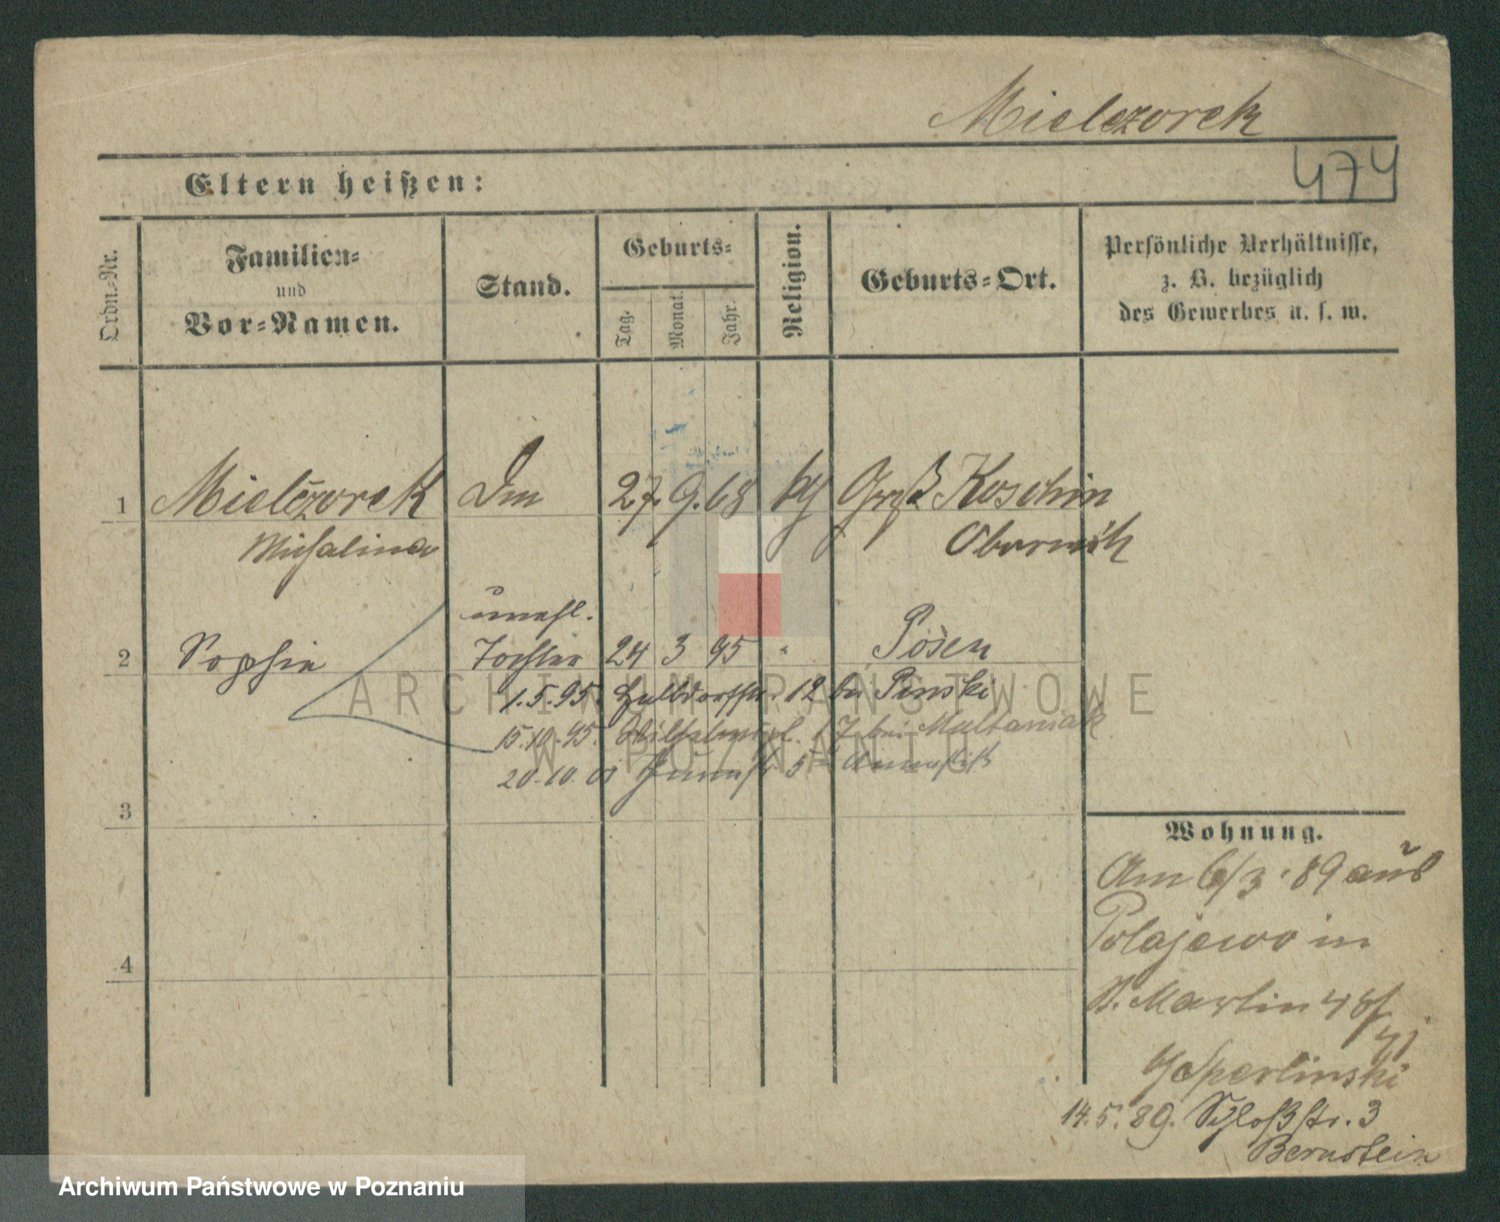 Mielczorek
474
Eltern heißen:
Ordn.-Nr.
Familien-
und
Vor-Namen.
Stand.
Geburts-
Tag.
Monat.
Jahr.
Religion.
Geburts-Ort.
Persönliche Verhältnisse,
z. B. bezüglich
des Gewerbes u. s. w.
1 Mielczorek Dm 27. 9. 68 kg Groß Koschin
Michalina Obornik
unehl.
2 Sophie Tochter 24 3 95 " Posen
1.5.95. Halbdorfstr. 12 bei Penski
15.10.95. Wilhelmspl. 17 bei Multaniak
20.10.01
5
3
4
Wohnung.
Am 6/3. 89 aus
Polajewo in
S. Martin 48/
Gasperlinski
14.5.89. Schloßstr. 3
Bernstein
ARCHIWUM PAŃSTWOWE
W POZNANIU
Archiwum Państwowe w Poznaniu